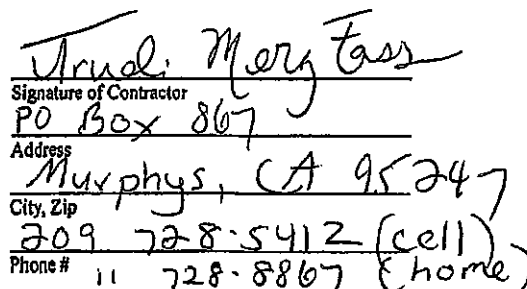 Trudi Merz Fass
Signature of Contractor
PO Box 867
Address
Murphys, CA 95247
City, Zip
209 728-5412 (cell)
Phone # " 728-8867 (home)